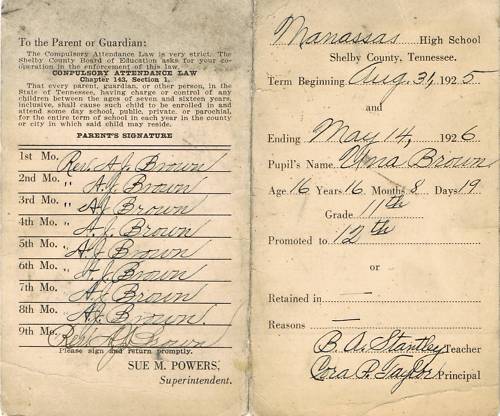 To the Parent or Guardian:
The Compulsory Attendance Law is very strict. The
Shelby County Board of Education asks for your co-
operation in the enforcement of this law.
COMPULSORY ATTENDANCE LAW
Chapter 143, Section 1.
That every parent, guardian, or other person, in the
State of Tennessee, having charge or control of any
children between the ages of seven and sixteen years,
inclusive, shall cause such child to be enrolled in and
attend some day school, public, private, or parochial,
for the entire term of school in each year in the county
or city in which said child may reside.
PARENT'S SIGNATURE
1st Mo. Rev. A. J. Brown
2nd Mo. " A. J. Brown
3rd Mo. " A. J. Brown
4th Mo. " A. J. Brown
5th Mo. " A. J. Brown
6th Mo. " A. J. Brown
7th Mo. " A. J. Brown
8th Mo. " A. J. Brown.
9th Mo. Rev. A. J. Brown
Please sign and return promptly.
SUE M. POWERS,
Superintendent.
Manassas High School
Shelby County, Tennessee.
Term Beginning Aug. 31, 1925
and
Ending May 14, 1926
Pupil's Name Brown
Age 16 Years 16 Months 8 Days 19
Grade 11th
Promoted to 12th
or
Retained in —
Reasons —
B. A. Stantley Teacher
Cora P. Taylor Principal